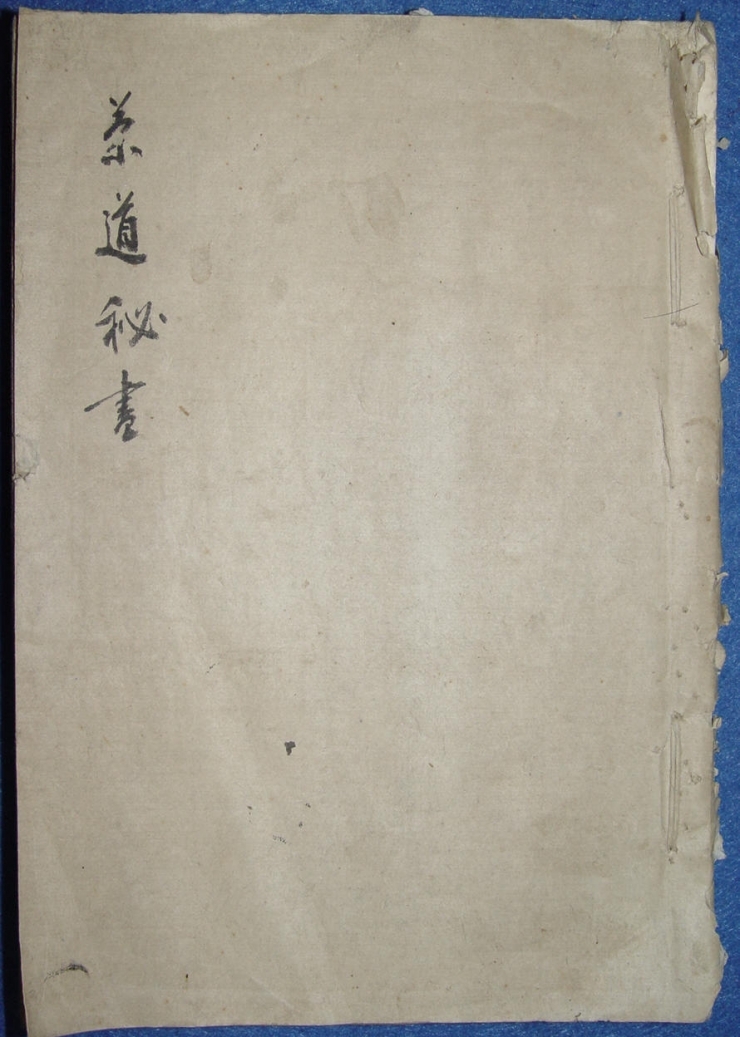 茶道秘書